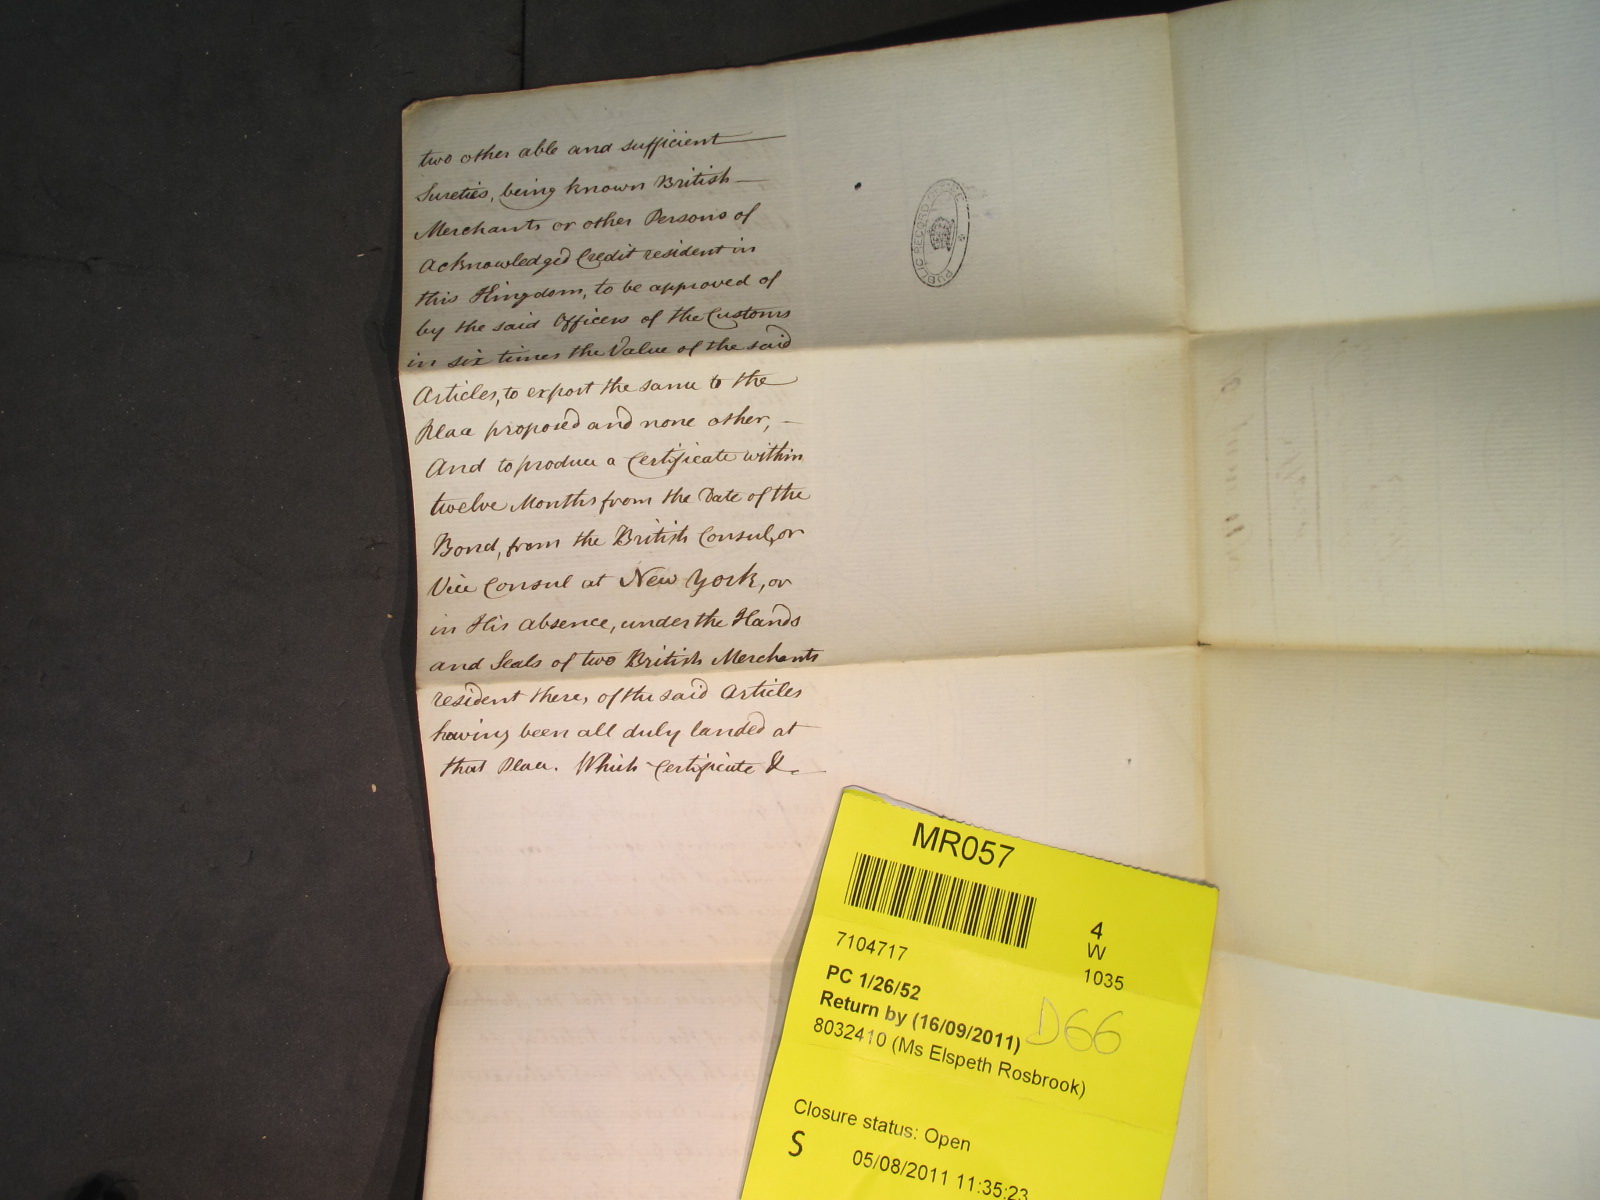 two other able and sufficient
Sureties, being known British
Merchants or other Persons of
Acknowledged Credit resident in
this Kingdom, to be approved of
by the said Officers of the Customs
in six times the Value of the said
Articles, to export the same to the
Place proposed and none other,
And to produce a Certificate within
twelve Months from the Date of the
Bond, from the British Consul, or
Vice Consul at New York, or
in His absence, under the Hands
and Seals of two British Merchants
resident there, of the said Articles
having been all duly landed at
that Place. Which Certificate &c
PUBLIC RECORD OFFICE
MR057
4
W
1035
7104717
PC 1/26/52
Return by (16/09/2011)
D66
8032410 (Ms Elspeth Rosbrook)
Closure status: Open
S
05/08/2011 11:35:23